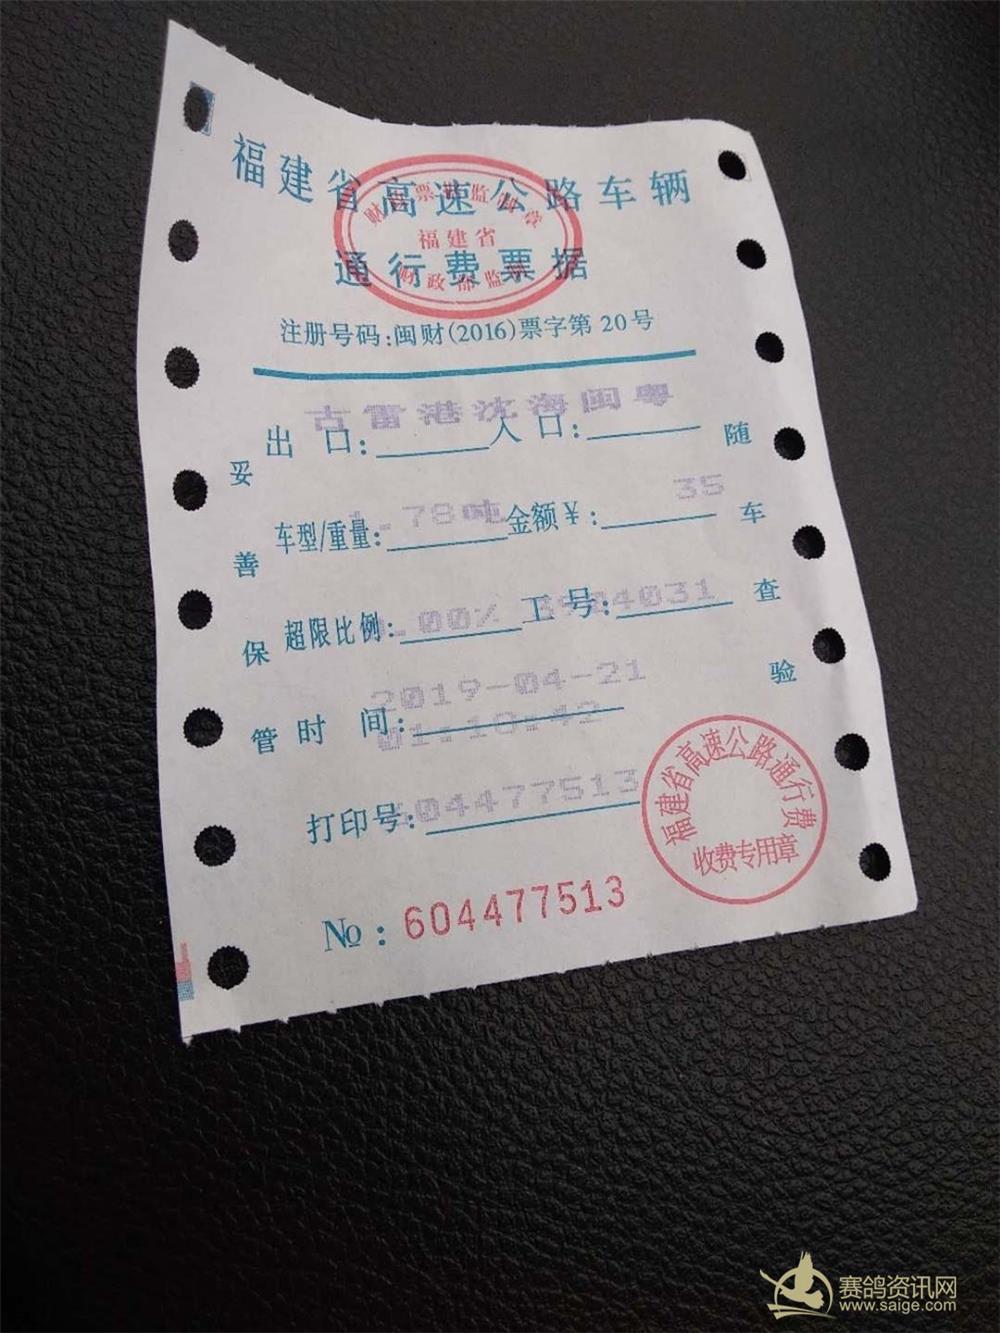 福建省高速公路车辆
通行费票据
福建省
注册号码:闽财(2016)票字第20号
古雷港沈海闽粤
出口: 入口:
车型/重量: 1.78吨 金额¥: 35
超限比例: .00% 工号: 04031
时间: 2019-04-21
01:10:42
打印号: 604477513
№: 604477513
妥善保管
随车查验
福建省高速公路通行费
收费专用章
赛鸽资讯网
www.saige.com